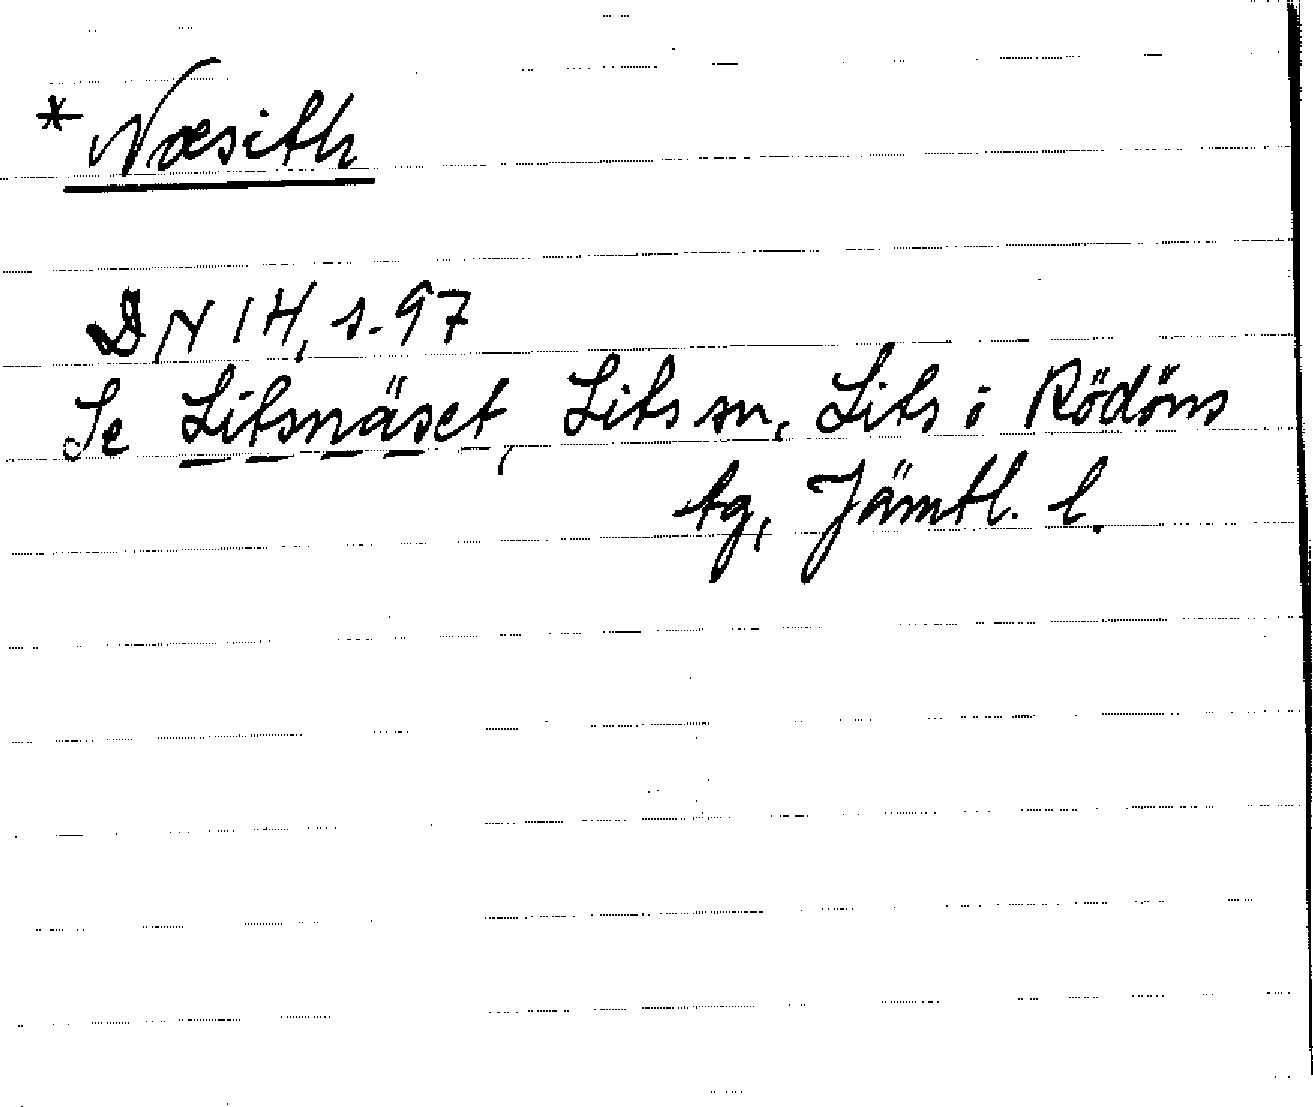 * Næsith
DN 14, s. 97
Se Litsnäset, Lits sn, Lits o Rödöns
tg, Jämtl. l.